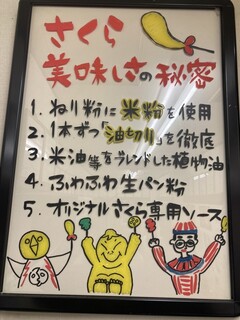 さくら
美味しさの秘密
1. ねり粉に米粉を使用
2. 1本ずつ"油切り"を徹底
3. 米油等をブレンドした植物油
4. ふわふわ生パン粉
5. オリジナルさくら専用ソース